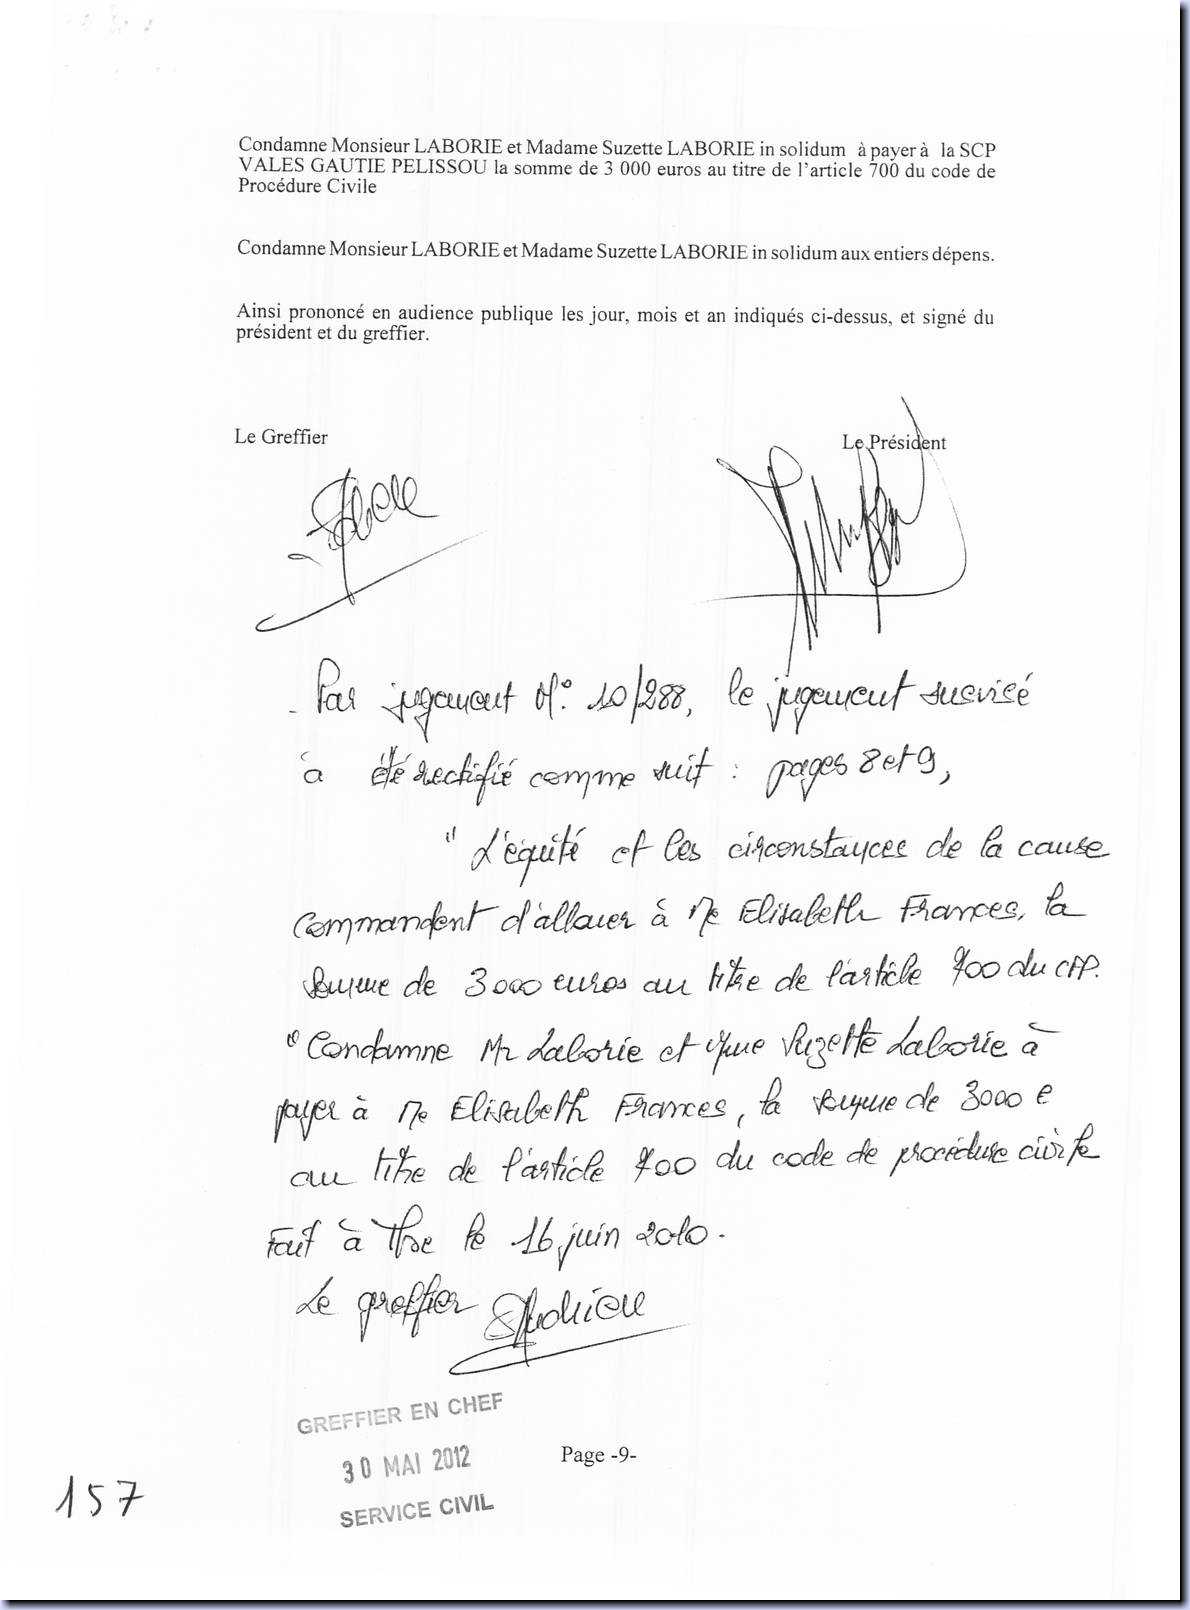 Condamne Monsieur LABORIE et Madame Suzette LABORIE in solidum à payer à la SCP
VALES GAUTIE PELISSOU la somme de 3 000 euros au titre de l'article 700 du code de
Procédure Civile
Condamne Monsieur LABORIE et Madame Suzette LABORIE in solidum aux entiers dépens.
Ainsi prononcé en audience publique les jour, mois et an indiqués ci-dessus, et signé du
président et du greffier.
Le Greffier
Le Président
- Par jugement N° 10/288, le jugement susvisé
a été rectifié comme suit : pages 8 et 9,
" L'équité et les circonstances de la cause
commandent d'allouer à Me Elisabeth Frances, la
somme de 3000 euros au titre de l'article 700 du CPP.
" Condamne Mr Laborie et Mme Suzette Laborie à
payer à Me Elisabeth Frances, la somme de 3000 e
au titre de l'article 700 du code de procédure civile
Fait à Tlse le 16 juin 2010.
Le greffier
GREFFIER EN CHEF
30 MAI 2012
SERVICE CIVIL
Page -9-
157